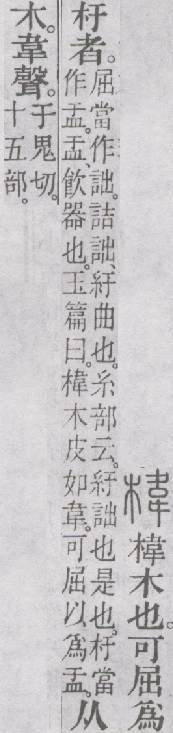 椲 椲木也。可屈爲
杅者。
屈當作詘。詰詘、紆曲也。糸部云。紆詘也是也。杅當
作盂。盂、飮器也。玉篇曰。椲木皮如韋。可屈以爲盂。
从
木。韋聲。
于鬼切。
十五部。